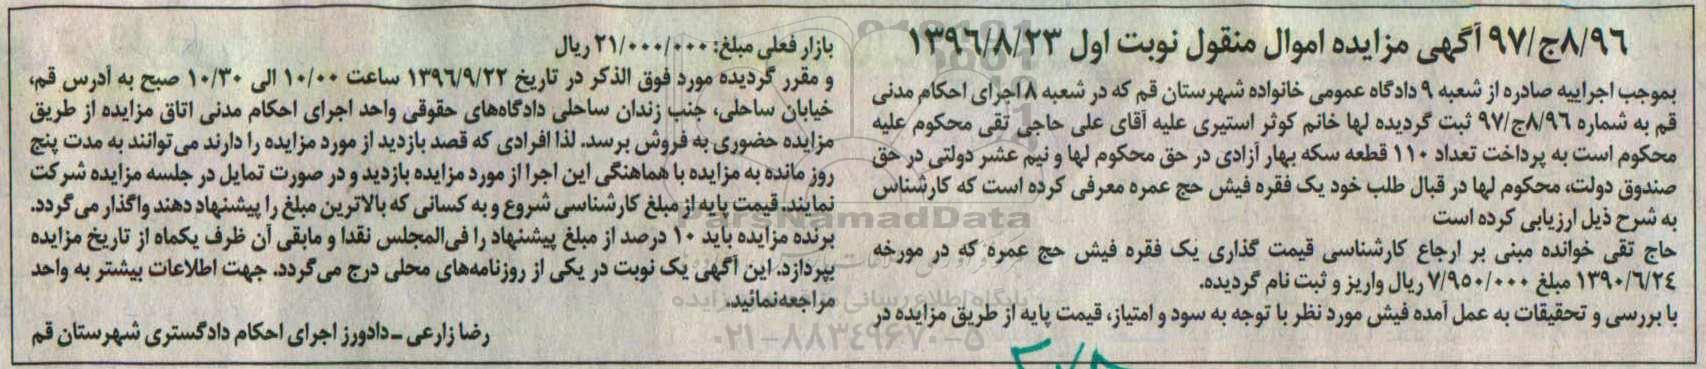 ۸/۹۶ج/۹۷ آگهی مزایده اموال منقول نوبت اول ۱۳۹۶/۸/۲۳
بموجب اجراییه صادره از شعبه ۹ دادگاه عمومی خانواده شهرستان قم که در شعبه ۸ اجرای احکام مدنی
قم به شماره ۸/۹۶ج/۹۷ ثبت گردیده لها خانم کوثر استیری علیه آقای علی حاجی تقی محکوم علیه
محکوم است به پرداخت تعداد ۱۱۰ قطعه سکه بهار آزادی در حق محکوم لها و نیم عشر دولتی در حق
صندوق دولت، محکوم لها در قبال طلب خود یک فقره فیش حج عمره معرفی کرده است که کارشناس
به شرح ذیل ارزیابی کرده است
حاج تقی خوانده مبنی بر ارجاع کارشناسی قیمت گذاری یک فقره فیش حج عمره که در مورخه
۱۳۹۰/۶/۲۴ مبلغ ۷/۹۵۰/۰۰۰ ریال واریز و ثبت نام گردیده.
با بررسی و تحقیقات به عمل آمده فیش مورد نظر با توجه به سود و امتیاز، قیمت پایه از طریق مزایده در
بازار فعلی مبلغ: ۲۱/۰۰۰/۰۰۰ ریال
و مقرر گردیده مورد فوق الذکر در تاریخ ۱۳۹۶/۹/۲۲ ساعت ۱۰/۰۰ الی ۱۰/۳۰ صبح به آدرس قم،
خیابان ساحلی، جنب زندان ساحلی دادگاه‌های حقوقی واحد اجرای احکام مدنی اتاق مزایده از طریق
مزایده حضوری به فروش برسد. لذا افرادی که قصد بازدید از مورد مزایده را دارند می‌توانند به مدت پنج
روز مانده به مزایده با هماهنگی این اجرا از مورد مزایده بازدید و در صورت تمایل در جلسه مزایده شرکت
نمایند. قیمت پایه از مبلغ کارشناسی شروع و به کسانی که بالاترین مبلغ را پیشنهاد دهند واگذار می‌گردد.
برنده مزایده باید ۱۰ درصد از مبلغ پیشنهاد را فی‌المجلس نقدا و مابقی آن ظرف یکماه از تاریخ مزایده
بپردازد. این آگهی یک نوبت در یکی از روزنامه‌های محلی درج می‌گردد. جهت اطلاعات بیشتر به واحد
مراجعه نمائید.
رضا زارعی ـ دادورز اجرای احکام دادگستری شهرستان قم
ParsNamadData
پایگاه اطلاع رسانی مزایده
۰۲۱-۸۸۳۴۹۶۷۰-۵